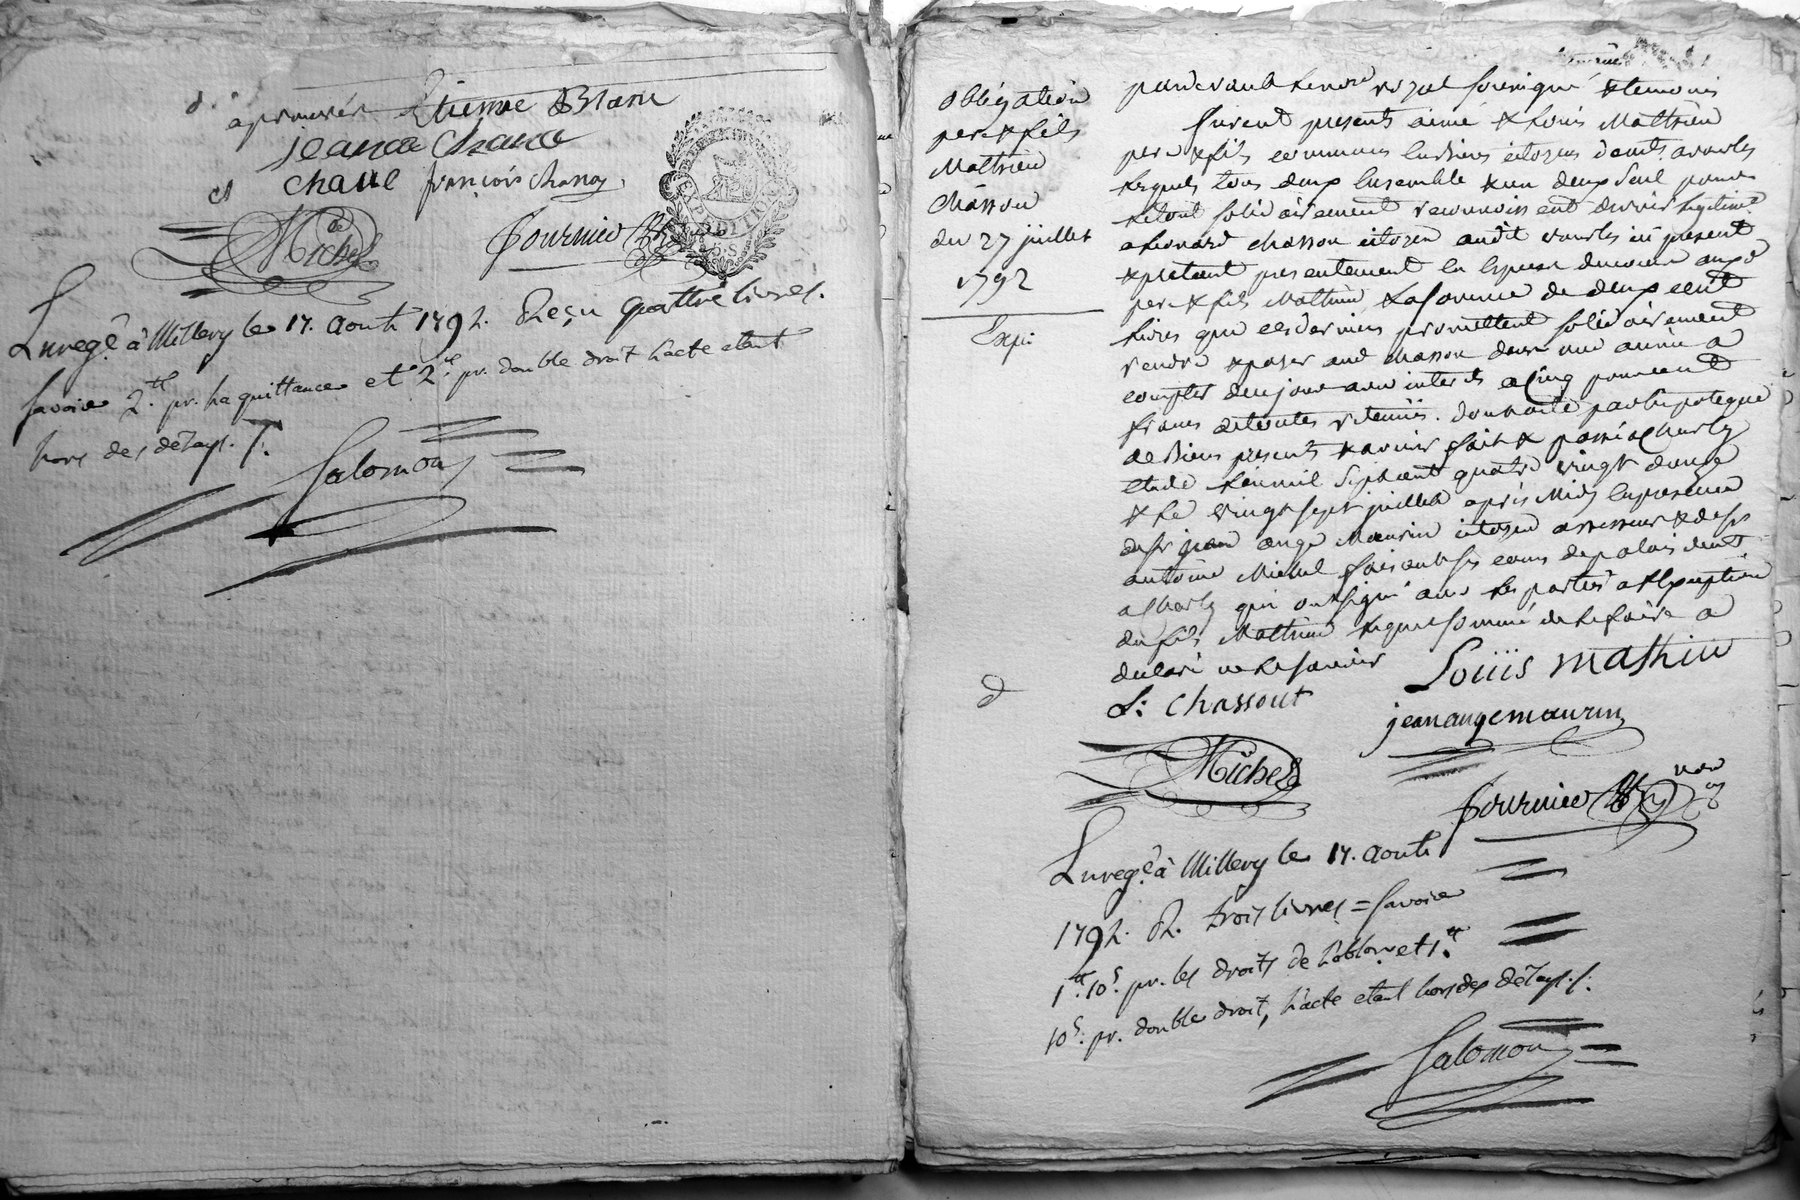 d. approuvés Etienne Blanc
jeanne Chanae
Chaue françois Chanay
Michel
fournier
EXPEDITION
Enregé à Millery le 17. aoust 1792. Reçu quattre livres.
savoir 2.tt pr. la quittance et 2.tt pr. double droit l'acte etant
hors des délays. T.
Salomon
obligation
pere & fils
Mathieu
Chasson
du 27 juillet
1792
Exp:
pardevant le nore royal soussigné & temoins
furent presents aimé & Louis Mathieu
pere & fils communs en biens citoyens dud. vourles
lesquels tous deux ensemble & un deux seul pour
le tout solidairement reconnoissent devoir legitimet
a Leonard Chasson citoyen audit vourles ici present
& pretant presentement en especes de cours auxd
pere & fils Mathieu la somme de deux cent
livres que ces derniers promettent solidairement
rendre & payer aud Chasson dans une année a
compter de ce jour avec interets a cinq pour cent
francs de toutes retenües. dont acte par hipoteque
de biens presents & avenir fait & passé a Charly
etude l'an mil sept cent quatre vingt douze
& le vingt sept juillet après Midy en presence
de sr jean ange Maurin citoyen assesseur & de sr
antoine Michel faisant ses cours de palais demt
a Charly qui ont signé avec les parties a l'exception
du fils Mathieu lequel sommé de le faire a
declaré ne le savoir
d L: Chassout Louiis mathiu
jean ange maurin
Michel
fournier nore
Enregé à Millery le 17. aoust
1792. R. trois livres = savoir
1.tt 10.s pr. les droits de l'oblon et 1.tt
10.s pr. double droit, l'acte etant hors des délays.
Salomon